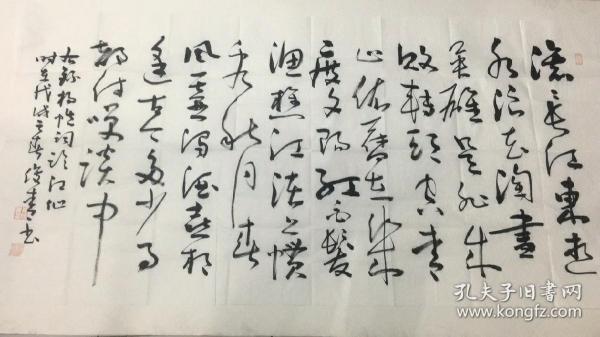 滚滚长江东逝
水浪花淘尽
英雄是非成
败转头空青
山依旧在几
度夕阳红白发
渔樵江渚上惯
看秋月春
风一壶浊酒喜相
逢古今多少事
都付笑谈中
右录杨慎词临江仙
时在戊戌之
孔夫子旧书网
www.kongfz.com